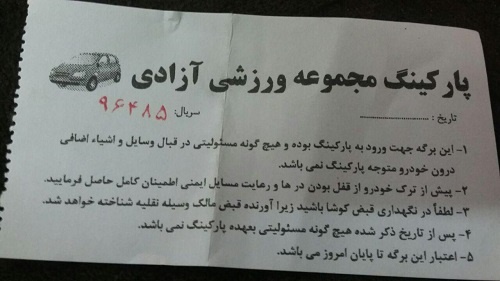 پارکینگ مجموعه ورزشی آزادی
تاریخ : ........................ سریال: ۹۶۴۸۵
۱- این برگه جهت ورود به پارکینگ بوده و هیچ گونه مسئولیتی در قبال وسایل و اشیاء اضافی
درون خودرو متوجه پارکینگ نمی باشد.
۲- پیش از ترک خودرو از قفل بودن در ها و رعایت مسایل ایمنی اطمینان کامل حاصل فرمایید.
۳- لطفاً در نگهداری قبض کوشا باشید زیرا آورنده قبض مالک وسیله نقلیه شناخته خواهد شد.
۴- پس از تاریخ ذکر شده هیچ گونه مسئولیتی بعهده پارکینگ نمی باشد.
۵- اعتبار این برگه تا پایان امروز می باشد.